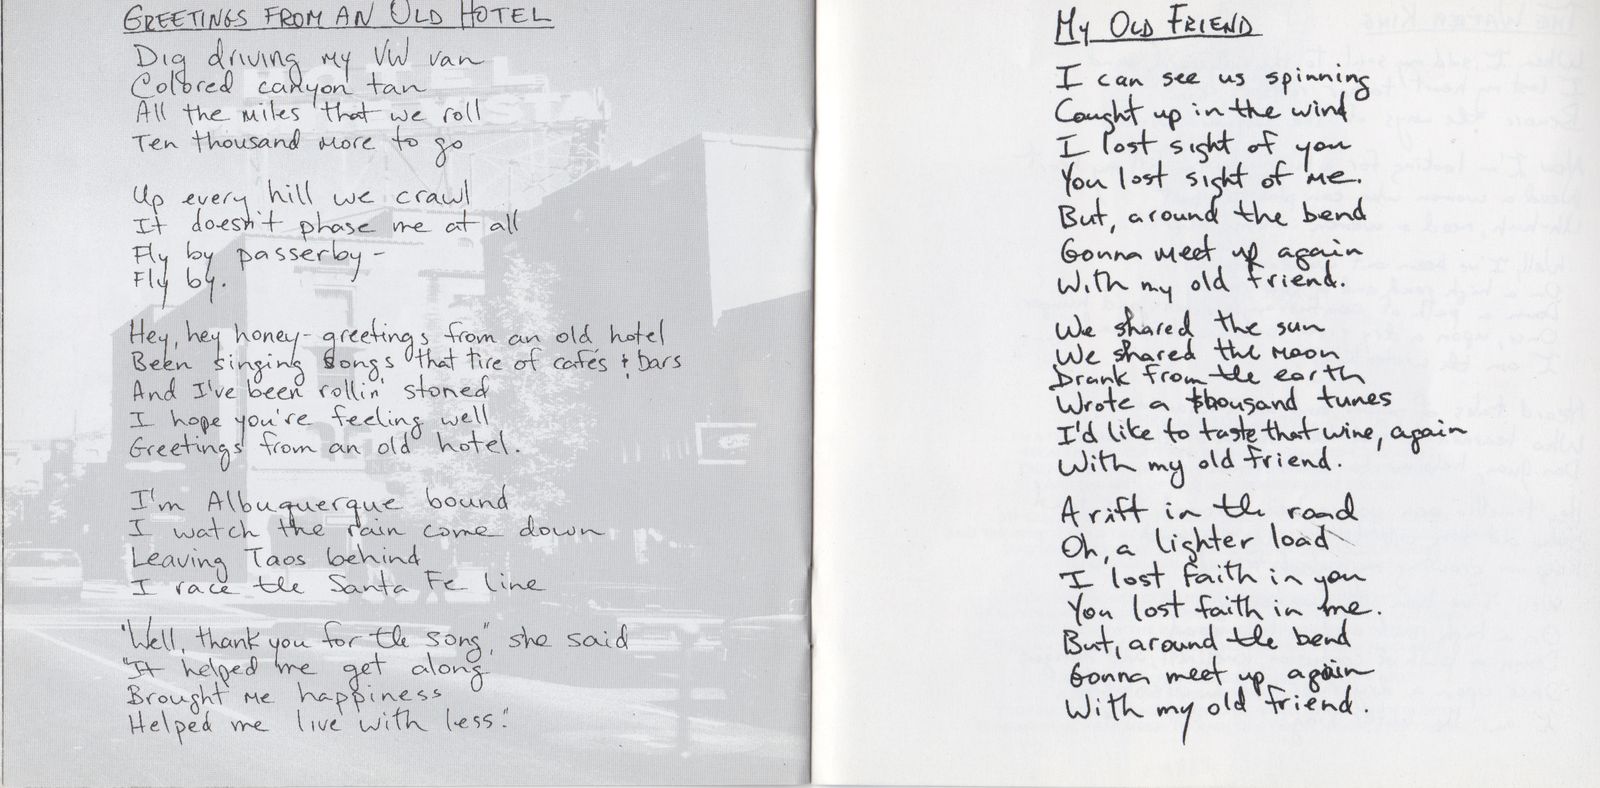 GREETINGS FROM AN OLD HOTEL
Dig driving my VW van
Colored canyon tan
All the miles that we roll
Ten thousand more to go
Up every hill we crawl
It doesn't phase me at all
Fly by passerby -
Fly by.
Hey, hey honey - greetings from an old hotel
Been singing songs that tire of cafés & bars
And I've been rollin' stoned
I hope you're feeling well
Greetings from an old hotel.
I'm Albuquerque bound
I watch the rain come down
Leaving Taos behind
I race the Santa Fe line
"Well, thank you for the song", she said
"It helped me get along
Brought me happiness
Helped me live with less."
MY OLD FRIEND
I can see us spinning
Caught up in the wind
I lost sight of you
You lost sight of me.
But, around the bend
Gonna meet up again
With my old friend.
We shared the sun
We shared the moon
Drank from the earth
Wrote a thousand tunes
I'd like to taste that wine, again
With my old friend.
A rift in the road
Oh, a lighter load
I lost faith in you
You lost faith in me.
But, around the bend
Gonna meet up again
With my old friend.